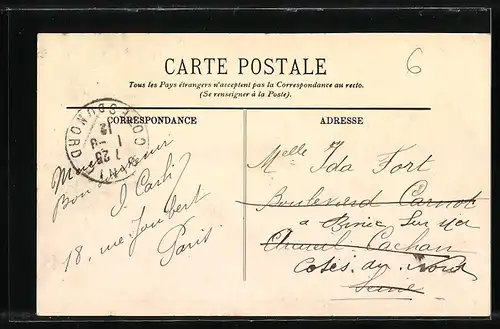 6
CARTE POSTALE
Tous les Pays étrangers n'acceptent pas la Correspondance au recto.
(Se renseigner à la Poste).
CORRESPONDANCE
ADRESSE
Bon
18, rue Joubert
Paris
Melle Ida Fort
Boulevard Carnot
a Binic Sur Mer
Arcueil Cachan
Cotes du Nord
Seine